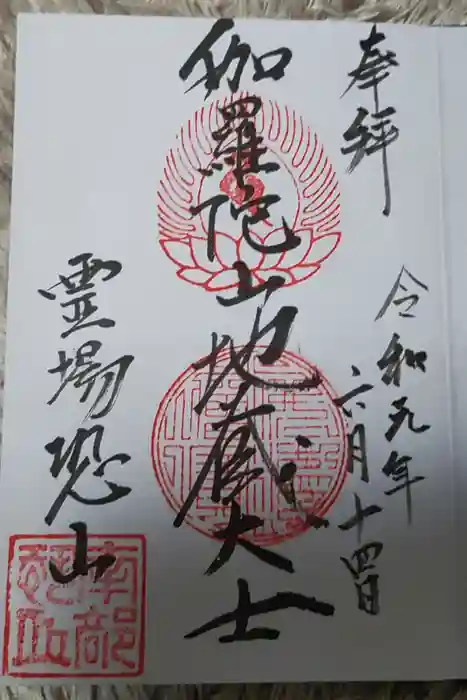 奉拝
令和元年
六月十四日
伽羅陀山地蔵大士
霊場恐山
南部
恐山